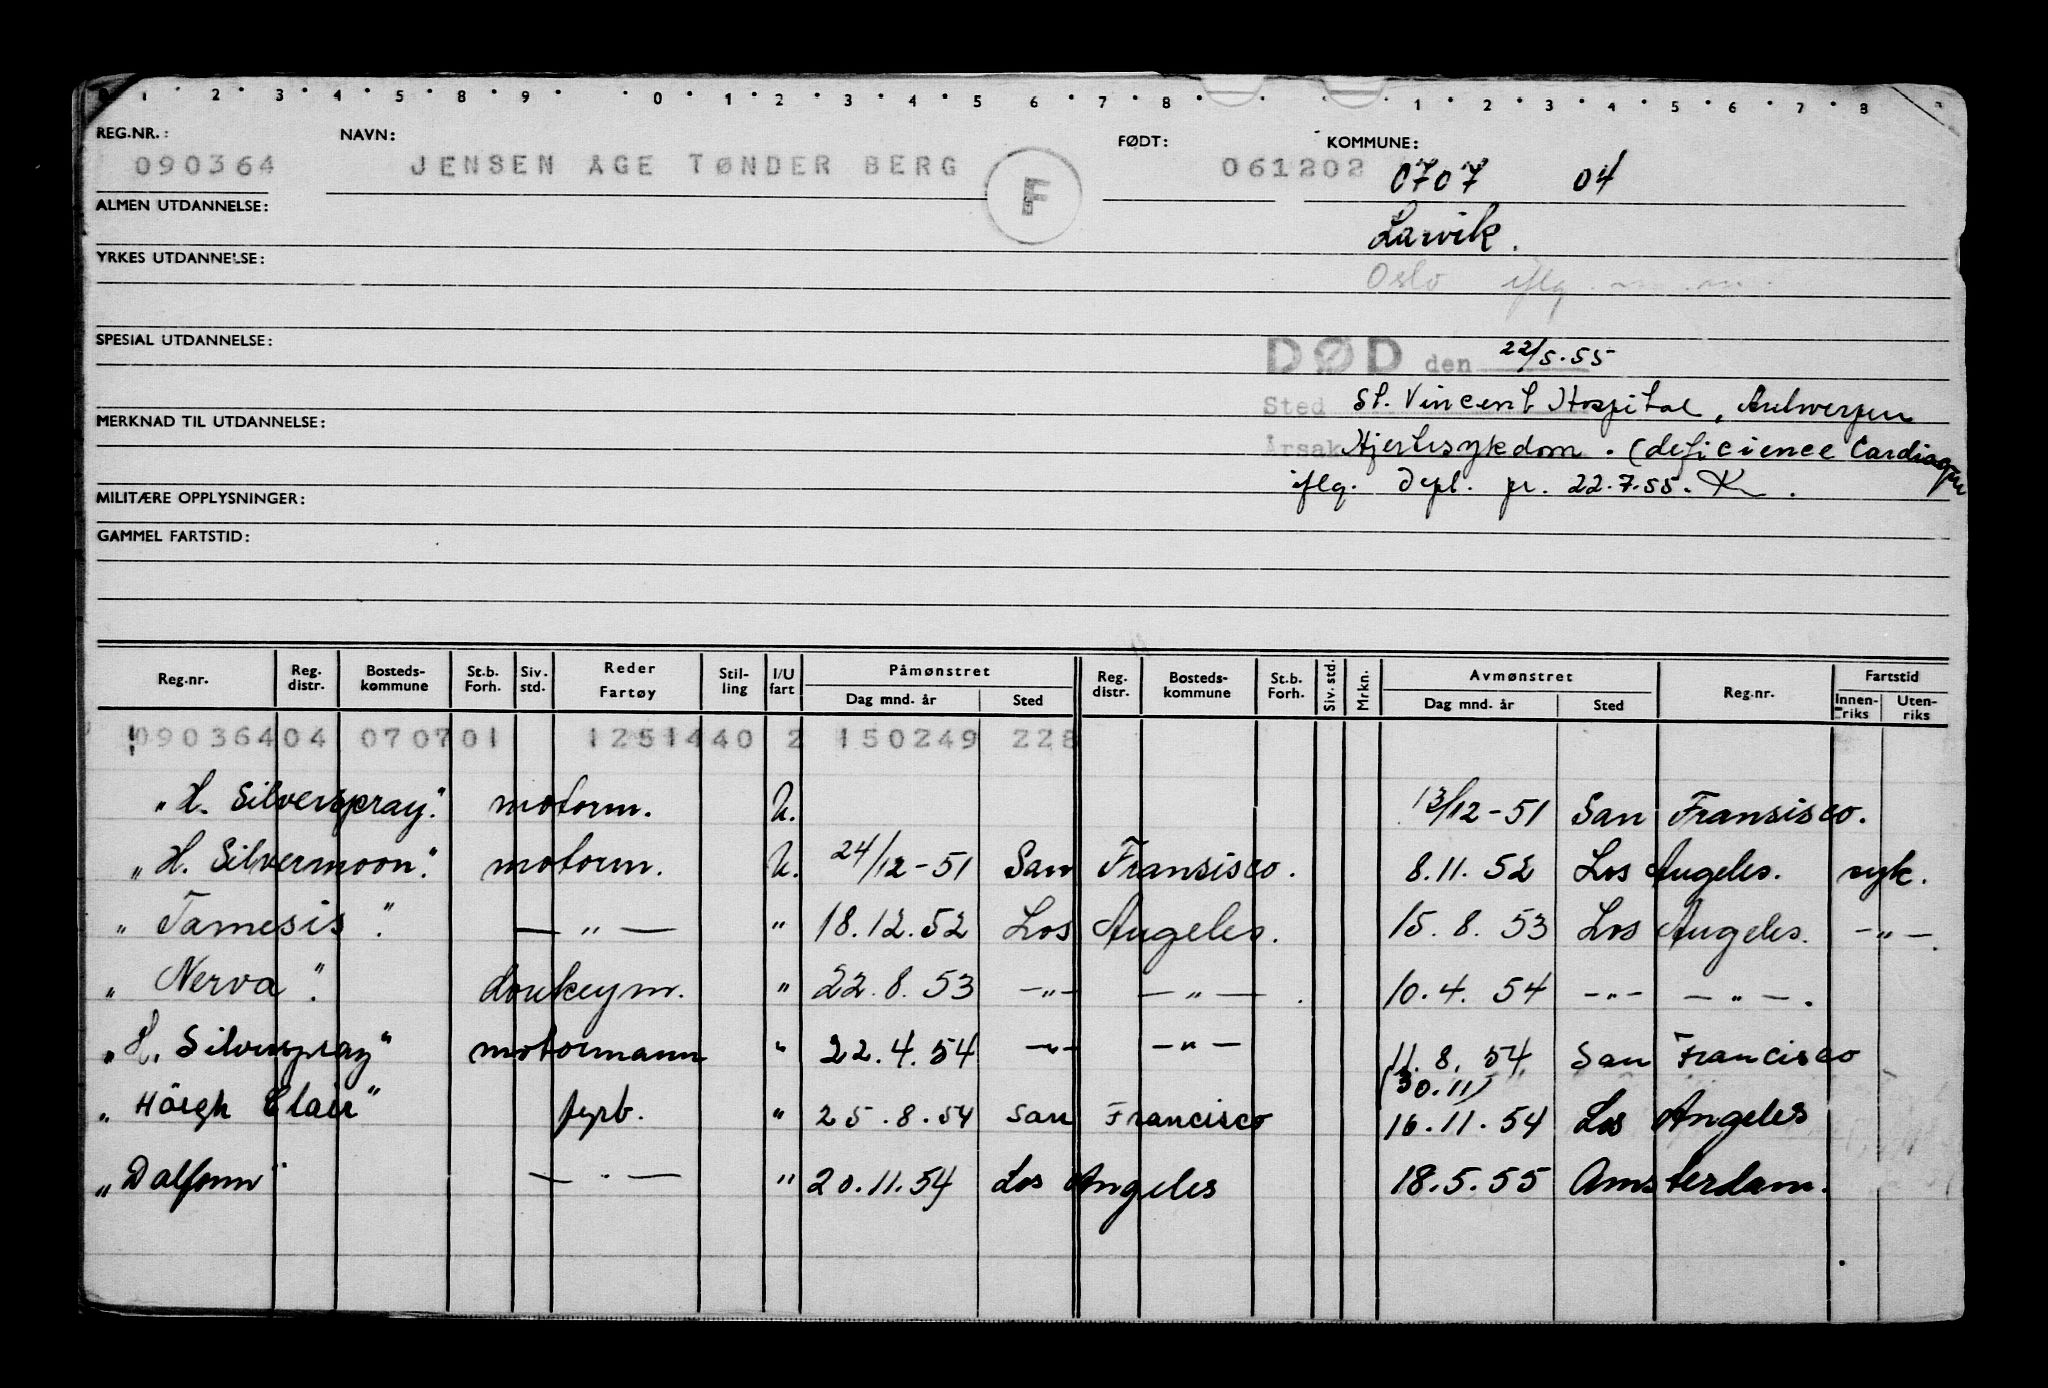 0 1 2 3 4 5 8 9 0 1 2 3 4 5 6 7 8 1 2 3 4 5 6 7 8
REG.NR.: NAVN: FØDT: KOMMUNE:
090364 JENSEN ÅGE TØNDER BERG F 061202 0707 04
ALMEN UTDANNELSE: Larvik.
YRKES UTDANNELSE:
Oslo iflg.
SPESIAL UTDANNELSE: DØD den 22/5.55
Sted St. Vincent Hospital, Antwerpen
MERKNAD TIL UTDANNELSE:
Årsak Hjertesykdom. (deficience Cardiaque
iflg. depl. pr. 22.7.55.
MILITÆRE OPPLYSNINGER:
GAMMEL FARTSTID:
Reg.nr. Reg. distr. Bosteds-kommune St.b. Forh. Siv. std. Reder Fartøy Stil-ling I/U fart Påmønstret Dag mnd. år Sted Reg. distr. Bosteds-kommune St.b. Forh. Siv. std. Mrkn. Avmønstret Dag mnd. år Sted Reg.nr. Fartstid Innen-riks Uten-riks
09036404 070701 1251440 2 150249 228
"H. Silverspray". motorm. U. 13/12-51 San Fransisco.
"H. Silvermoon". motorm. U. 24/12-51 San Fransisco. 8.11.52 Los Angeles. syk.
"Tamesis". —"— " 18.12.52 Los Angeles. 15.8.53 Los Angeles. —"—.
"Nerva". donkeym. " 22.8.53 —"— —"—. 10.4.54 —"— —"—.
"H. Silverspray" motormann " 22.4.54 —"— —"— 11.8.54 San Francisco
(30.11)
"Höegh Clair" fyrb. " 25.8.54 San Francisco 16.11.54 Los Angeles
"Dalfonn" —"— " 20.11.54 Los Angeles 18.5.55 Amsterdam.